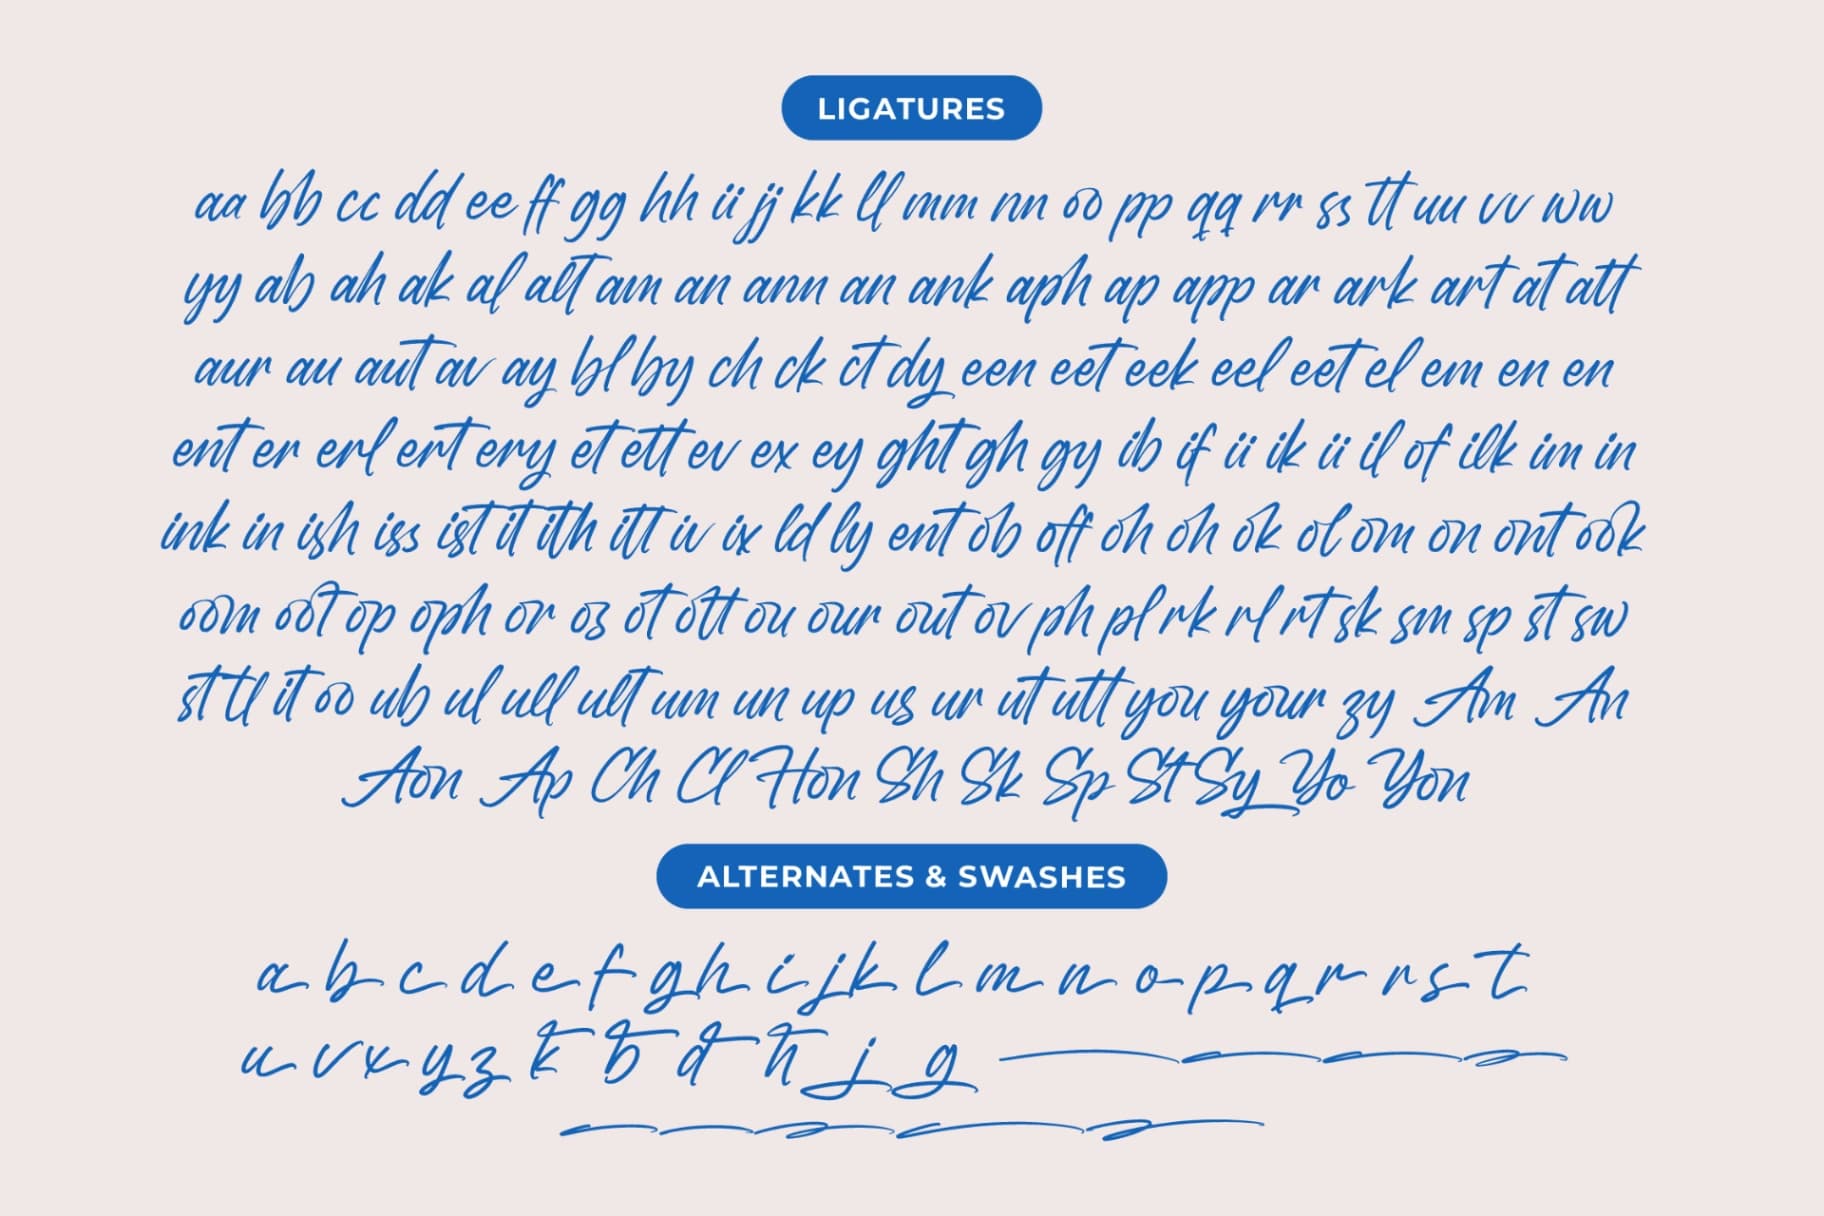 LIGATURES
aa bb cc dd ee ff gg hh ii jj kk ll mm nn oo pp qq rr ss tt uu vv ww
yy ab ah ak al alt am an ann an ank aph ap app ar ark art at att
aur au aut av ay bl by ch ck ct dy een eet eek eel eet el em en en
ent er erl ert ery et ett ev ex ey ght gh gy ib if ii ik ii il of ilk im in
ink in ish iss ist it ith itt iv ix ld ly ent ob off oh oh ok ol om on ont ook
oom oot op oph or oz ot ott ou our out ov ph pl rk rl rt sk sm sp st sw
st tl it oo ub ul ull ult um un up us ur ut utt you your zy Am An
Aon Ap Ch Cl Hon Sh Sk Sp St Sy Yo Yon
ALTERNATES & SWASHES
a b c d e f g h i j k l m n o p q r r s t
u v x y z k b d h j g